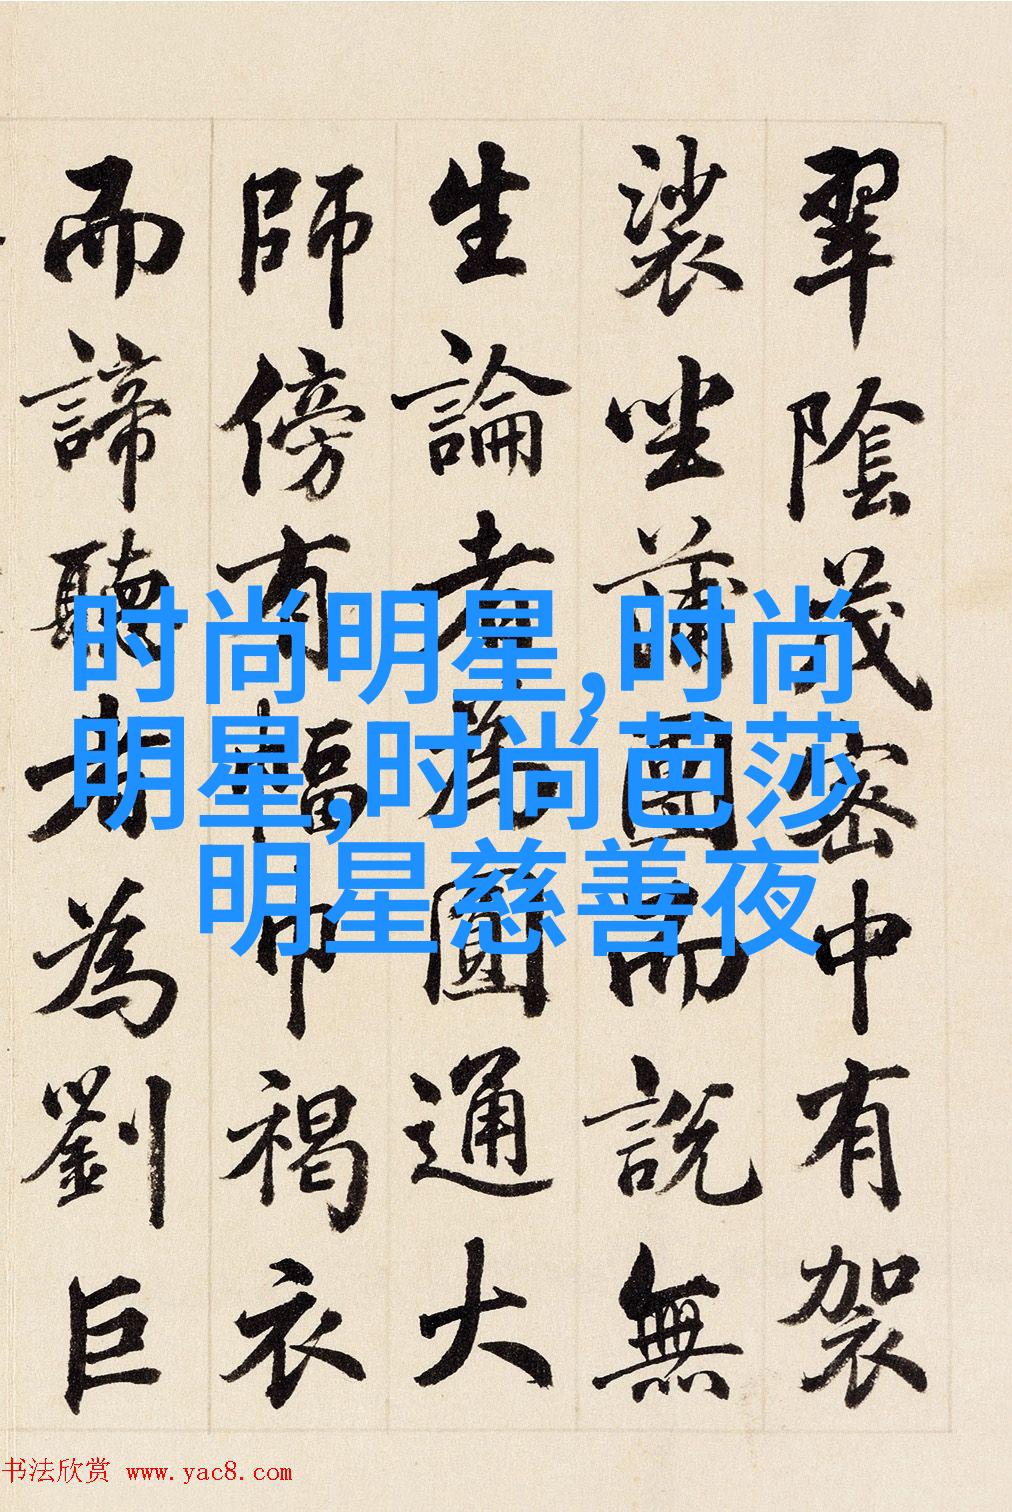 翠陰茂密中有袈
裟坐蒲團而說無
生論者為圓通大
師傍有幅巾褐衣
而諦聽者為劉巨
时尚明星,时尚
明星,时尚芭莎
明星慈善夜
书法欣赏 www.yac8.com